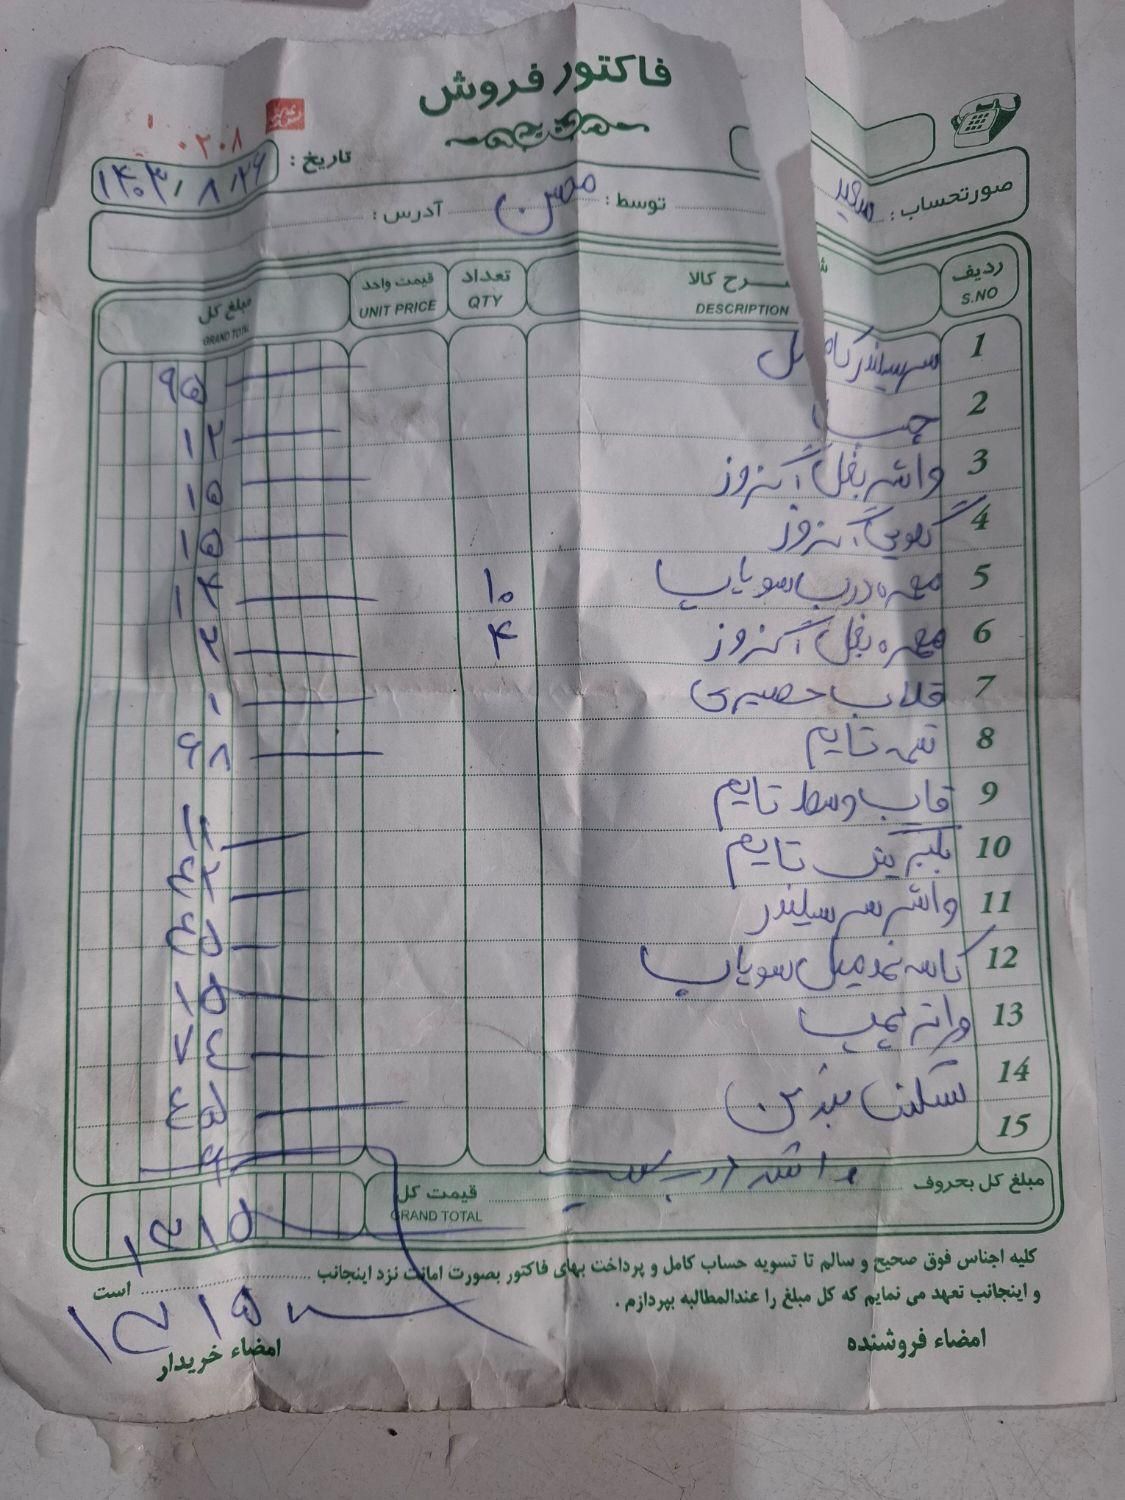 فاکتور فروش
۰۲۰۸
تاریخ : ۱۴۰۳/۸/۲۶
صورتحساب : سعید
توسط : محسن آدرس :
ردیف شرح کالا تعداد قیمت واحد مبلغ کل
S.NO DESCRIPTION QTY UNIT PRICE GRAND TOTAL
1 سرسیلندر کامل ۹۵۰
2 چسب ۱۲
3 واشر بغل اگزوز ۱۵
4 گلویی اگزوز ۱۵
5 مهره درب سوپاپ ۱۰ ۱۴
6 مهره بغل اگزوز ۴ ۲
7 قلاب حصیری ۱
8 تسمه تایم ۶۸
9 قاب وسط تایم ۱۱
10 بلبرینگ تایم ۴۲
11 واشر سرسیلندر ۳۵
12 کاسه نمد میل سوپاپ ۱۵
13 واتر پمپ ۷۴
14 شلنگ بنزین ۴۵
15
مبلغ کل بحروف واشر درب قیمت کل
GRAND TOTAL ۱۳۱۵
کلیه اجناس فوق صحیح و سالم تا تسویه حساب کامل و پرداخت بهای فاکتور بصورت امانت نزد اینجانب است
و اینجانب تعهد می نمایم که کل مبلغ را عندالمطالبه بپردازم .
۱۳۱۵
امضاء فروشنده امضاء خریدار